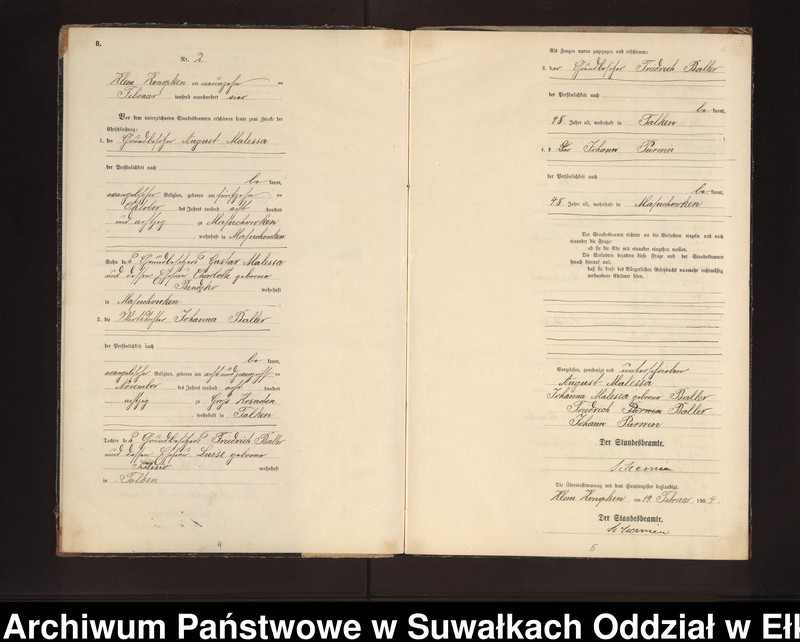 B.
Nr. 2
Klein Konopken am neunzehnten
Februar tausend neunhundert vier
Vor dem unterzeichneten Standesbeamten erschienen heute zum Zwecke der
Eheschließung:
1. der Grundbesitzer August Malessa
der Persönlichkeit nach
be kannt,
evangelischer Religion, geboren am fünfzehnten
Oktober des Jahres tausend acht hundert
und achtzig zu
wohnhaft in
Sohn des Grundbesitzers Gustav Malessa
und dessen Ehefrau Charlotte geborene
wohnhaft
in
2. die Wirthstochter Johanna Baller
der Persönlichkeit nach
be kannt,
evangelischer Religion, geboren am acht und zwanzigsten
November des Jahres tausend acht hundert
achtzig zu Groß
wohnhaft in Talken
Tochter des Grundbesitzers Friedrich Baller
und dessen Ehefrau Luise geborene
wohnhaft
in Talken
4
Als Zeugen waren zugezogen und erschienen:
3. der Grundbesitzer Friedrich Baller
der Persönlichkeit nach
be kannt,
48 Jahre alt, wohnhaft in Talken
4. Der Johann Purwin
der Persönlichkeit nach
be kannt,
48 Jahre alt, wohnhaft in
Der Standesbeamte richtete an die Verlobten einzeln und nach
einander die Frage:
ob sie die Ehe mit einander eingehen wollen.
Die Verlobten bejahten diese Frage und der Standesbeamte
sprach hierauf aus,
daß sie kraft des Bürgerlichen Gesetzbuchs nunmehr rechtmäßig
verbundene Eheleute seien.
Vorgelesen, genehmigt und unterschrieben
August Malessa
Johanna Malessa geborene Baller
Friedrich Purwin Baller
Johann Purwin
Der Standesbeamte.
Die Übereinstimmung mit dem Hauptregister beglaubigt.
Klein Konopken am 19 Februar 190 4.
Der Standesbeamte.
5
Archiwum Państwowe w Suwałkach Oddział w Eł